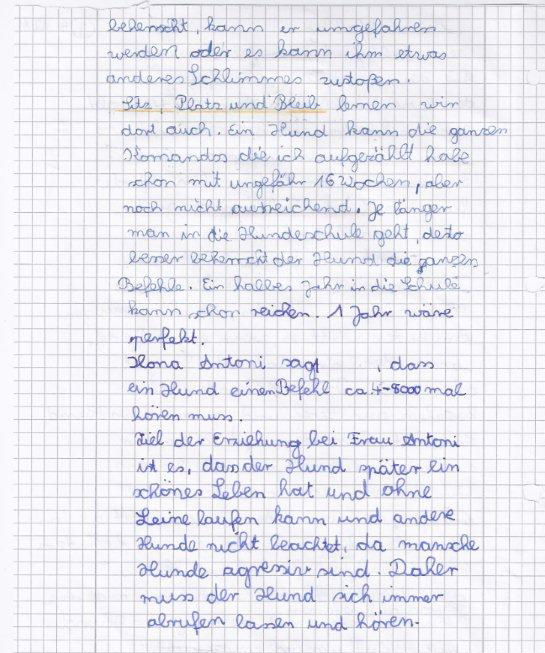 beherrscht, kann er umgefahren
werden oder es kann ihm etwas
anderes Schlimmes zustoßen.
Sitz, Platz und Bleib lernen wir
dort auch. Ein Hund kann die ganzen
Komandos die ich aufgezählt habe
schon mit ungefähr 16 Wochen, aber
noch nicht ausreichend. Je länger
man in die Hundeschule geht, desto
besser beherrscht der Hund die ganzen
Befehle. Ein halbes Jahr in die Schule
kann schon reichen. 1 Jahr wäre
perfekt.
Ilona Antoni sagt , dass
ein Hund einen Befehl ca. 4-8000 mal
hören muss.
Ziel der Erziehung bei Frau Antoni
ist es, dass der Hund später ein
schönes Leben hat und ohne
Leine laufen kann und andere
Hunde nicht beachtet, da mansche
Hunde agressiv sind. Daher
muss der Hund sich immer
abrufen lassen und hören.